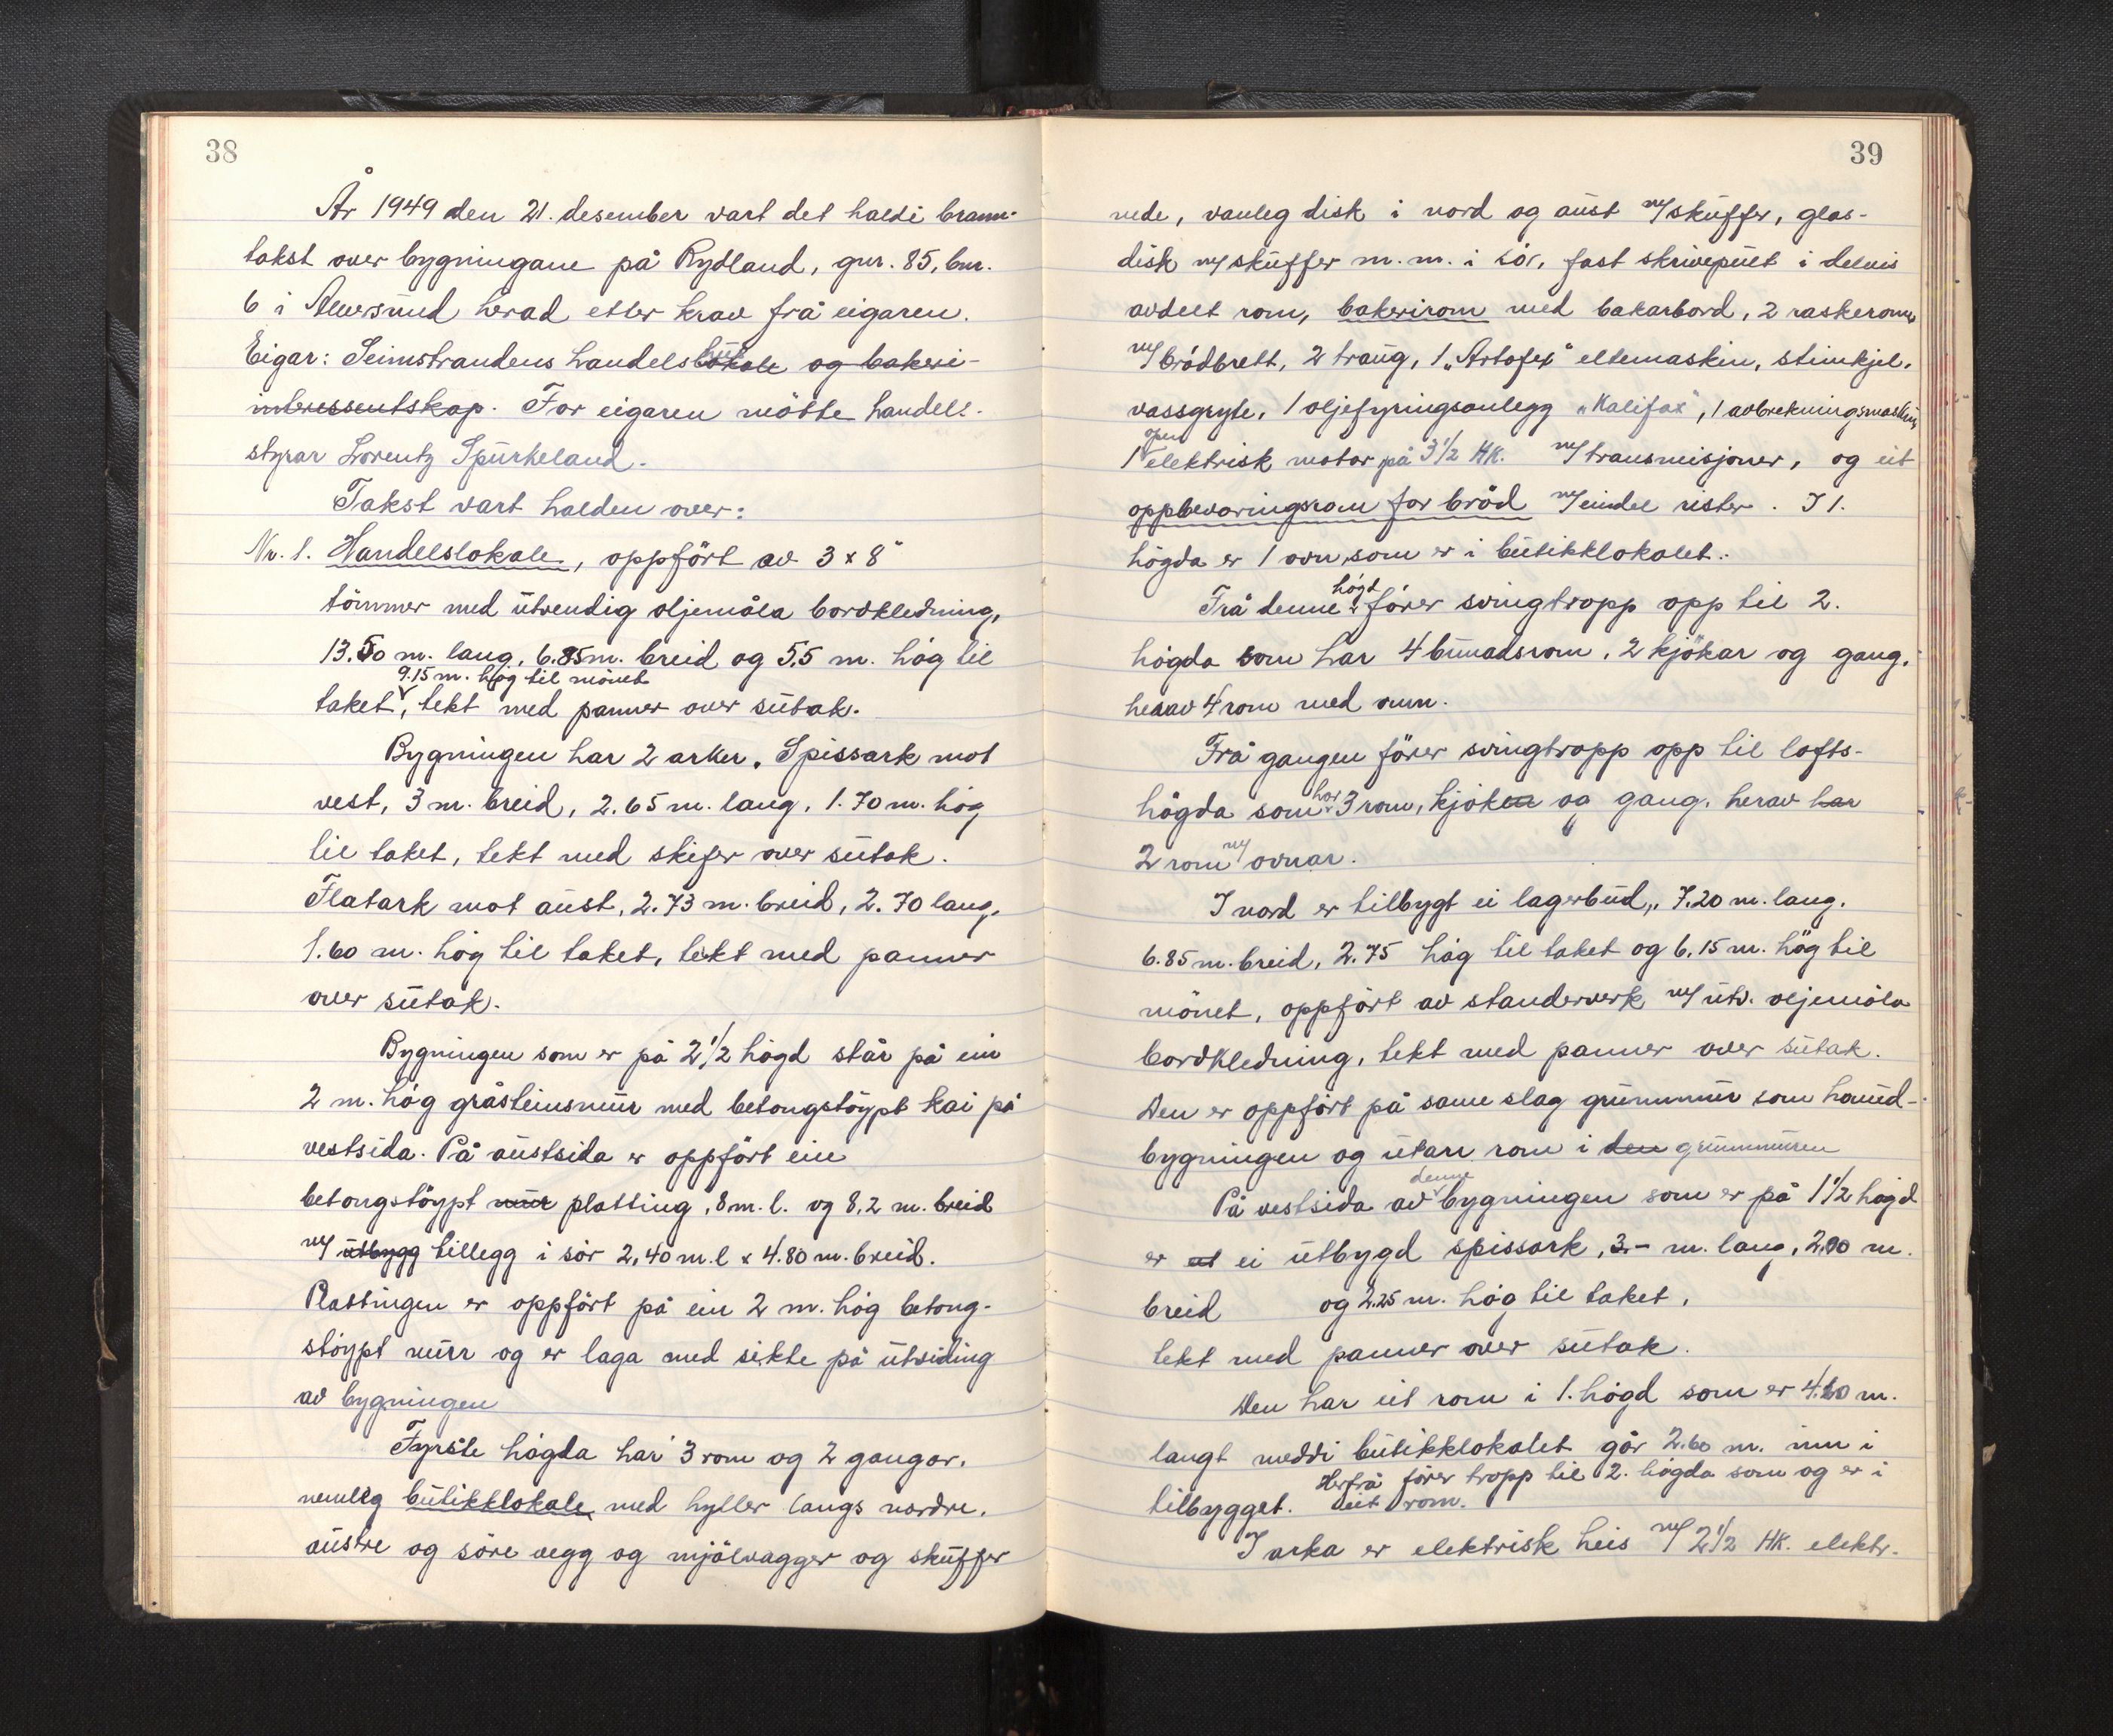 38
År 1949 den 21. desember vart det haldi brann-
takst over bygningane på Rydland, gnr. 85, bnr.
6 i Alversund herad etter krav frå eigaren.
Eigar: Seimstrandens handelslokale og bakeri-
interessentskap. For eigaren møtte handels-
styrar Lorentz Spurkeland.
Takst vart halden over:
Nr. 1. Handelslokale, oppfört av 3 x 8"
tömmer med utvendig oljemåla bordkledning,
13.50 m. lang, 6.85 m. breid og 5,5 m. høg til
9.15 m. høg til mønet
taket, tekt med panner over sutak.
Bygningen har 2 arker. Spissark mot
vest, 3 m. breid, 2.65 m. lang, 1.70 m. høg
til taket, tekt med skifer over sutak.
Flatark mot aust, 2.73 m. breid, 2.70 lang,
1.60 m. høg til taket, tekt med panner
over sutak.
Bygningen som er på 2 1/2 högd står på ein
2 m. høg gråsteinsmur med betongstöypt kai på
vestsida. På austsida er oppfört ein
betongstöypt mur platting, 8 m. l. og 8,2 m. breid
m/ utbygg tillegg i sör 2,40 m. l x 4.80 m. breid.
Plattingen er oppfört på ein 2 m. høg betong-
stöypt murr og er laga med sikte på utviding
av bygningen
Fyrste högda har 3 rom og 2 gangar,
nemleg butikklokale, med hyller langs nordre,
austre og söre vegg og mjölvagger og skuffer
39
nede, vanleg disk i nord og aust m/skuffer, glas-
disk m/skuffer m.m. i sör, fast skrivepult i delvis
avdelt rom, bakerirom med bakarbord, 2 raskerom
m/brödbrett, 2 traug, 1 "Artofex" eltemaskin, stimkjel,
vassgryte, 1 oljefyringsanlegg "Kalifax", 1 avbrekningsmaskin,
open
1 elektrisk motor på 3 1/2 HK. m/transmisjoner, og eit
oppbevaringsrom for bröd m/eindel rister. I 1.
högda er 1 ovn som er i butikklokalet.
högd
Frå denne förer svingtropp opp til 2.
högda som har 4 bunadsrom, 2 kjökar og gang,
herav 4 rom med omn.
Frå gangen förer svingtropp opp til lofts-
högda som har 3 rom, kjöken og gang, herav har
2 rom m/ ovnar.
I nord er tilbygt ei lagerbud, 7.20 m. lang,
6.85 m. breid, 2.75 høg til taket og 6,15 m. høg til
mønet, oppfört av standerverk m/ utv. oljemåla
bordkledning, tekt med panner over sutak.
Den er oppfört på same slag grunnmur som hovud-
bygningen og utan rom i den grunnmuren
denne
På vestsida av bygningen som er på 1 1/2 högd
er et ei utbygd spissark, 3.- m. lang, 2,90 m.
breid og 2.25 m. høg til taket,
tekt med panner over sutak.
Den har eit rom i 1. högd som er 4.20 m.
langt meddi butikklokalet går 2.60 m. inn i
tilbygget. Herfrå förer tropp til 2. högda som og er i
eit rom.
I arka er elektrisk heis m/ 2 1/2 HK. elektr.